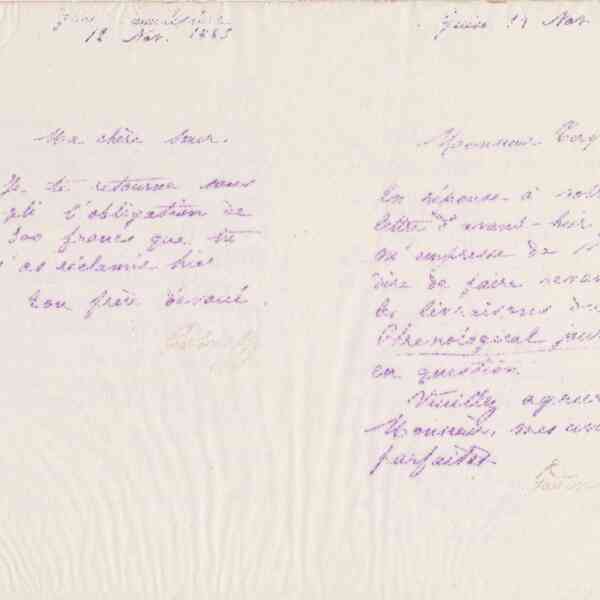 12 Nov. 1883
Ma chère Sœur.
Je te retourne sous
pli l'obligation de
500 francs que tu
m'as réclamée hier
Ton frère dévoué.
Guise 14 Nov.
Monsieur
En réponse à votre
lettre d'avant-hier, je
m'empresse de
dire de faire
les livraisons du
Phrenological
en question.
Veuillez agréer
Monsieur, mes
parfaites.
Godin